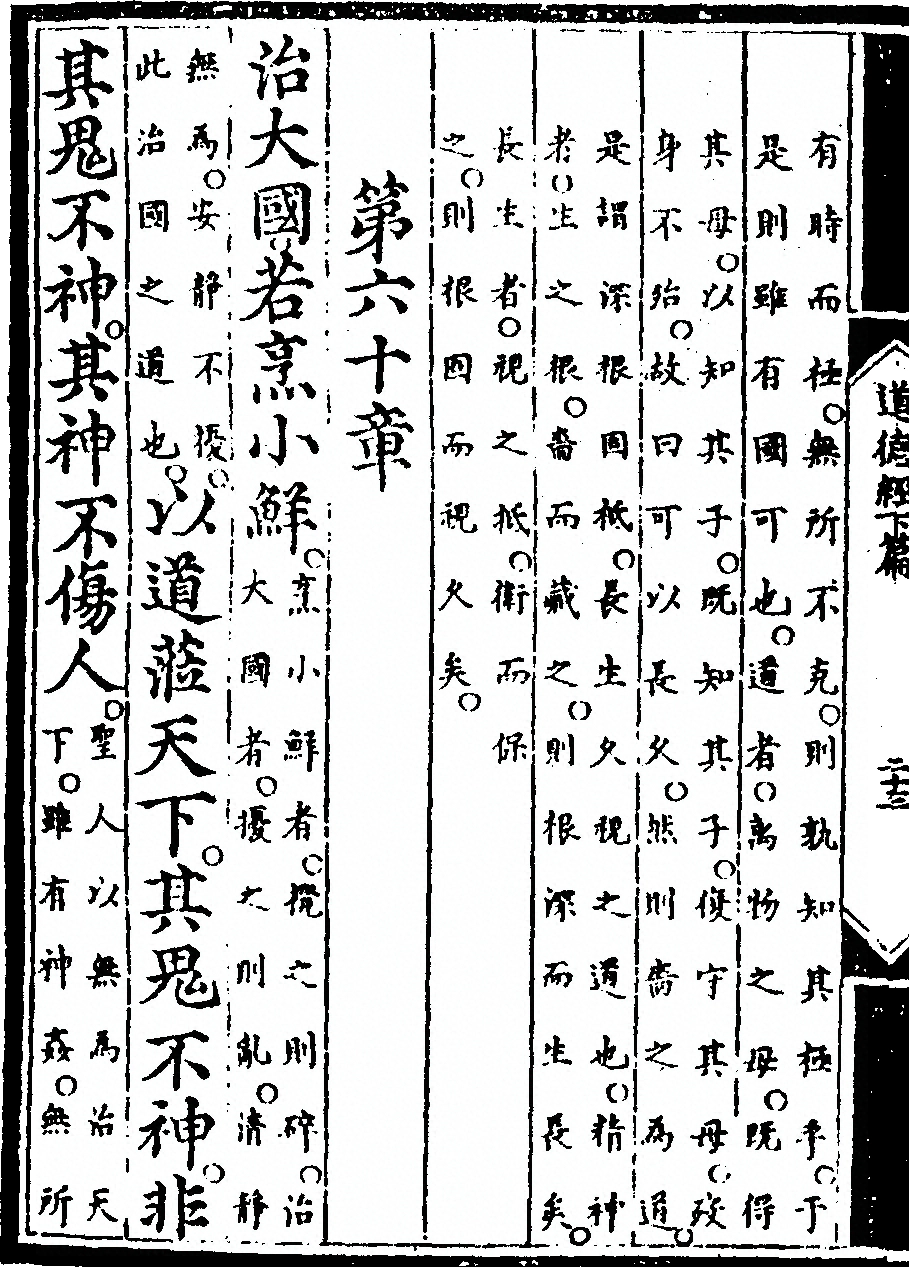 道德經下篇
二十三
有時而極。無所不克。則孰知其極乎。于
是則雖有國可也。道者。萬物之母。既得
其母。以知其子。既知其子。復守其母。歿
身不殆。故曰可以長久。然則嗇之為道。
是謂深根固柢。長生久視之道也。精神
者。生之根。嗇而藏之。則根深而生長矣。
長生者。視之柢。衛而保
之。則根固而視久矣。
第六十章
治大國。若烹小鮮。
烹小鮮者。撓之則碎。治
大國者。擾之則亂。清靜
無為。安靜不擾。
此治國之道也。
以道蒞天下。其鬼不神。非
其鬼不神。其神不傷人。
聖人以無為治天
下。雖有神姦。無所